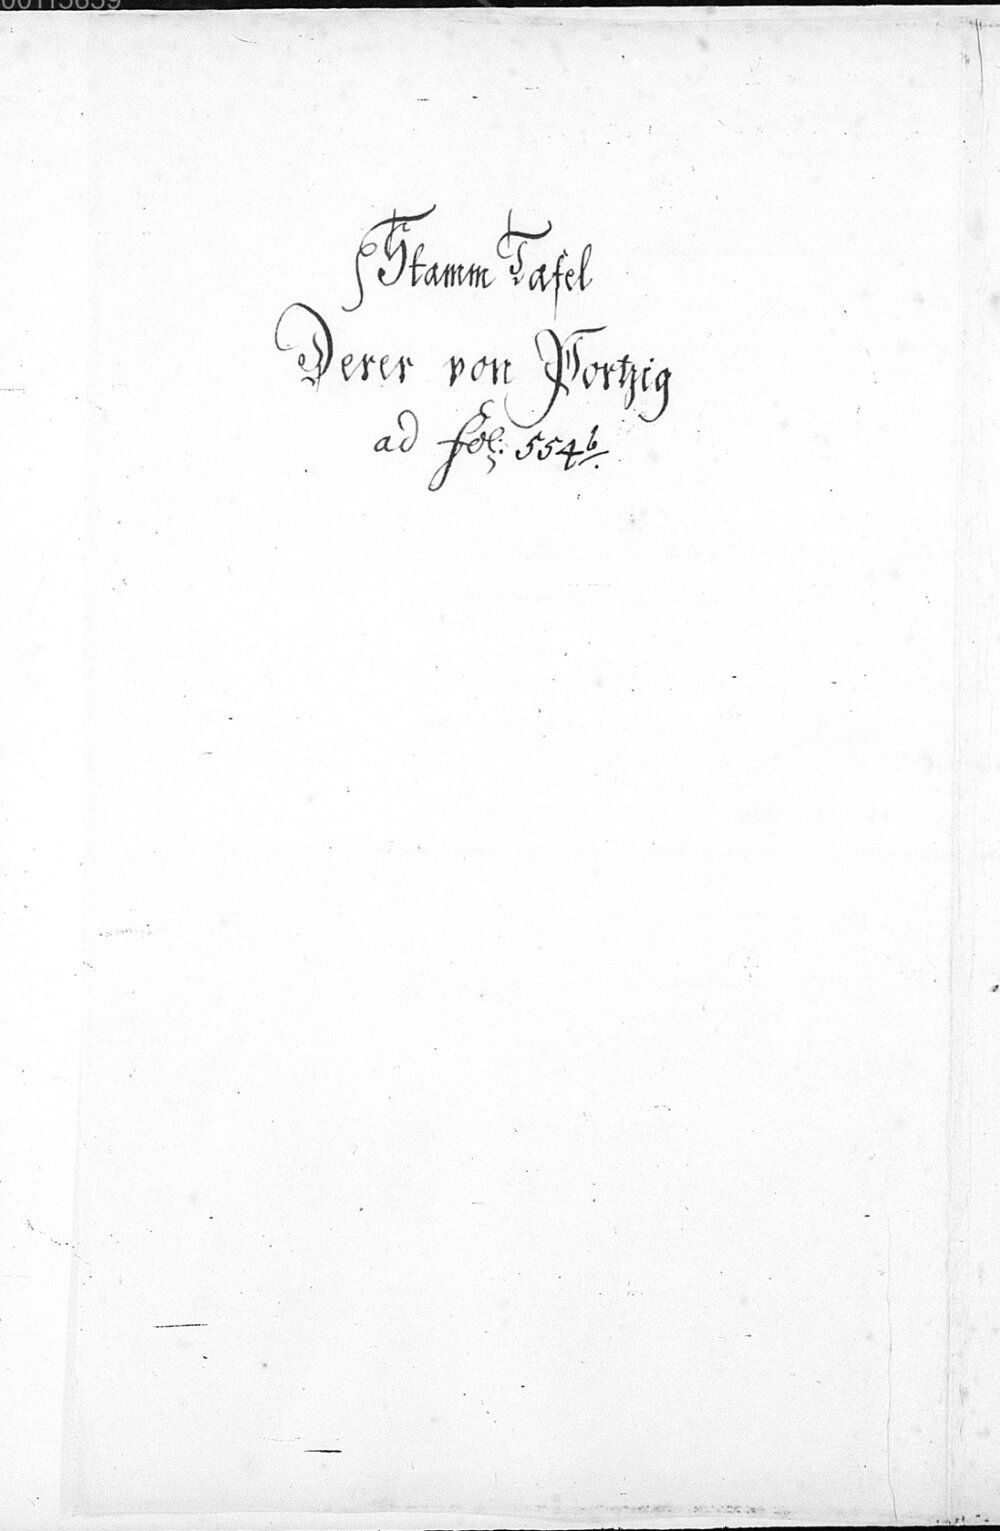 00115659
Stamm Tafel
Derer von Portzig
ad Fol: 554b.